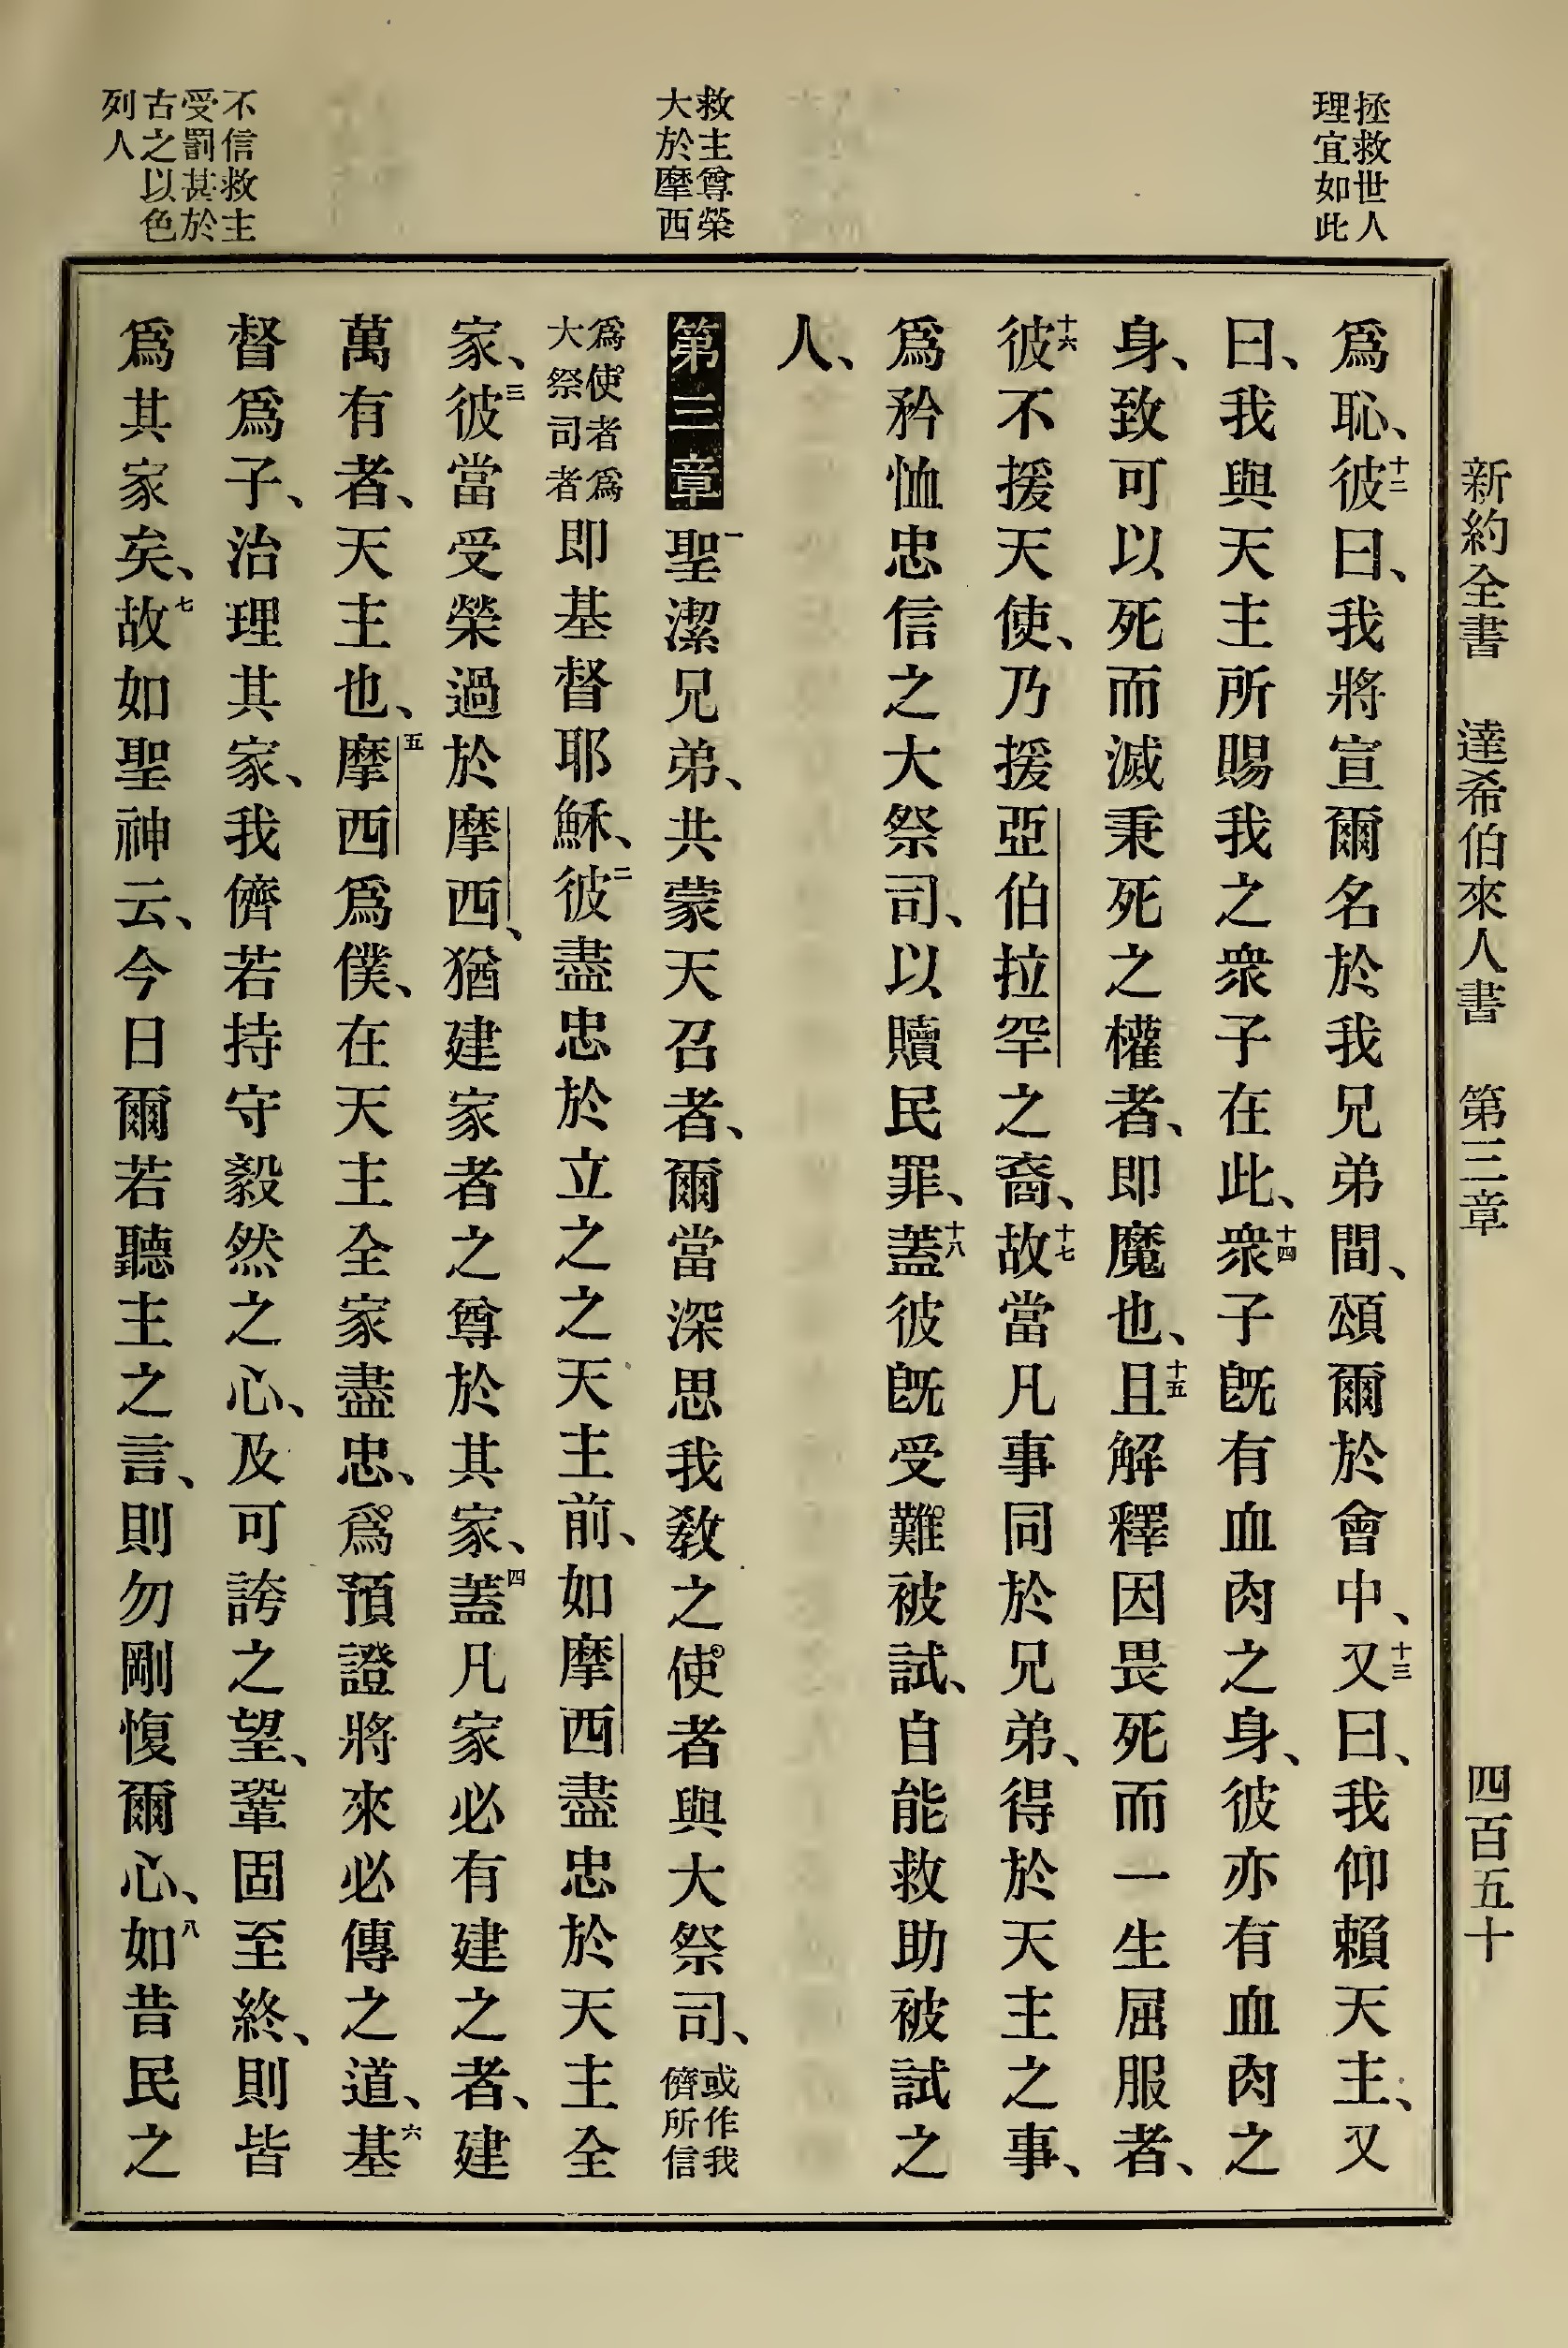 新約全書 達希伯來人書 第三章 四百五十
拯救世人
理宜如此
救主尊榮
大於摩西
不信救主
受罰甚於
古之以色
列人
爲恥、十二彼曰、我將宣爾名於我兄弟間、頌爾於會中、十三又曰、我仰賴天主、又
曰、我與天主所賜我之衆子在此、十四衆子旣有血肉之身、彼亦有血肉之
身、致可以死而滅秉死之權者、即魔也、十五且解釋因畏死而一生屈服者、
十六彼不援天使、乃援亞伯拉罕之裔、十七故當凡事同於兄弟、得於天主之事、
爲矜恤忠信之大祭司、以贖民罪、十八蓋彼旣受難被試、自能救助被試之
人、
第三章 一聖潔兄弟、共蒙天召者、爾當深思我教之使者與大祭司、或作我儕所信
爲使者爲大祭司者即基督耶穌、二彼盡忠於立之之天主前、如摩西盡忠於天主全
家、三彼當受榮過於摩西、猶建家者之尊於其家、四蓋凡家必有建之者、建
萬有者、天主也、五摩西爲僕、在天主全家盡忠、爲預證將來必傳之道、六基
督爲子、治理其家、我儕若持守毅然之心、及可誇之望、鞏固至終、則皆
爲其家矣、七故如聖神云、今日爾若聽主之言、則勿剛愎爾心、八如昔民之